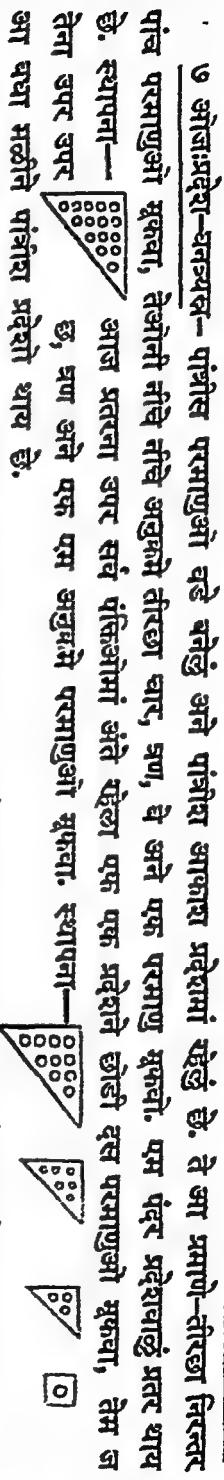 ७ ओजःप्रदेश-घनत्र्यस्र— पांत्रीस परमाणुओ वडे बनेलुं अने पांत्रीश आकाश प्रदेशमां रहेलुं छे. ते आ प्रमाणे-तीरछा निरन्तर
पांच परमाणुओ मूकवा, तेओनी नीचे नीचे अनुक्रमे तीरछा चार, त्रण, बे अने एक परमाणु मूकवो. एम पंदर प्रदेशवाळुं प्रतर थाय
छे. स्थापना— आज प्रतरना उपर सर्व पंक्तिओमां अंते रहेला एक एक प्रदेशने छोडी दस परमाणुओ मूकवा, तेम ज
तेना उपर उपर छ, त्रण अने एक एम अनुक्रमे परमाणुओ मूकवा. स्थापना—
आ बधा मळीने पांत्रीश प्रदेशो थाय छे.